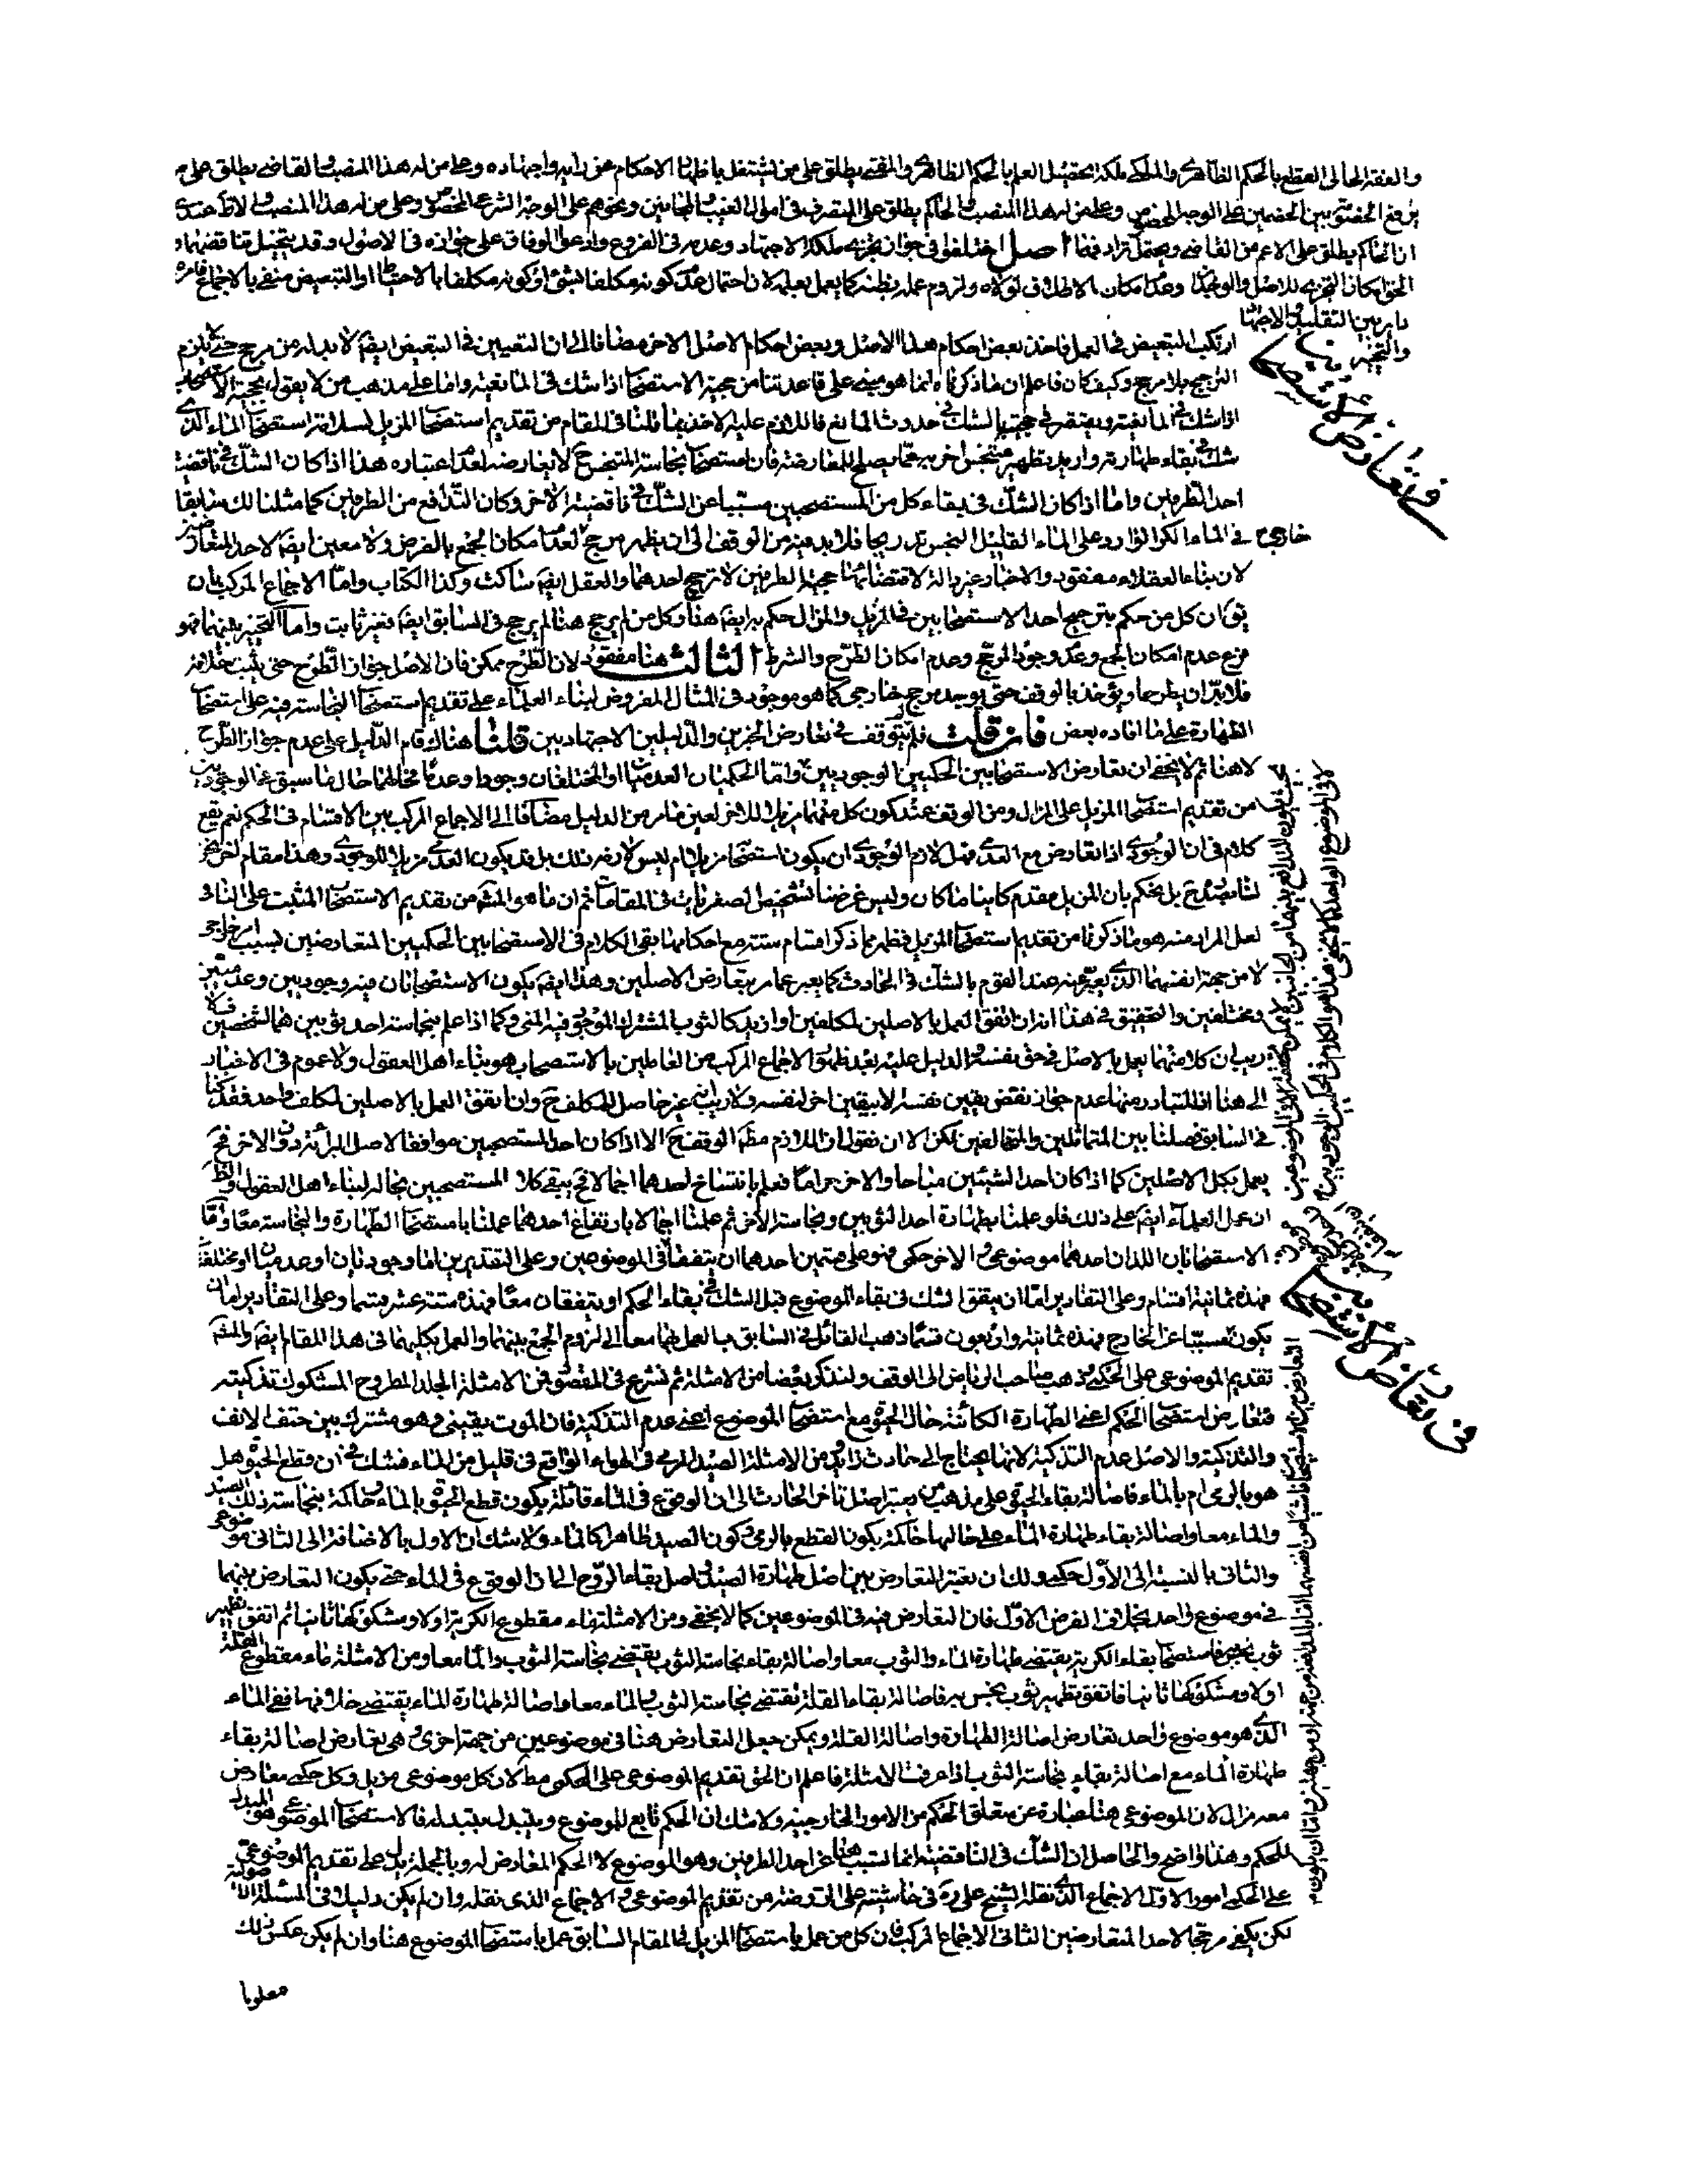 والفقه الحالى القطع بالحكم الظاهرى والملكى ملكة تحصيل العلم بالحكم الظاهرى والمفتى يطلق على من اشتغل باظهار الاحكام عن رايه واجتهاده وعلى من له هذا المنصب والقاضى يطلق على من
يرفع الخصومة بين الخصمين على الوجه المخصوص وعلى من له هذا المنصب والحاكم يطلق على المتصرف فى اموال الغيب والمجانين ونحوهم على الوجه الشرعى المخصوص وعلى من له هذا المنصب والاظهر عندى
ان الحاكم يطلق على الاعم من القاضى ويحتمل ترادفهما اصل اختلفوا فى جواز تجزى ملكة الاجتهاد وعدمه فى الفروع وادعى الوفاق على جوازه فى الاصول وقد يتخيل تناقضهما و
الحق امكان التجزى للاصل والوجدان وعدم امكان الاطلاق لولاه ولزوم عمله بظنه كما يعمل بعلمه لان احتمال عدم كونه مكلفا بشئ او كونه مكلفا بالاحتياط او التبعيض منفى بالاجماع فامره
دار بين التقليد والاجتهاد
والتخيير
ارتكب التبعيض فى العمل فاخذ بعض احكام هذا الاصل وبعض احكام الاصل الاخر مضافا الى ان التعيين فى التبعيض ايضا لابد له من مرجح حتى لا يلزم
الترجيح بلا مرجح وكيف كان فاعلم ان ما ذكرناه انما هو مبنى على قاعدتنا من حجية الاستصحاب اذا شك فى المانعية واما على مذهب من لا يقول بحجية الاستصحاب
اذا شك فى المانعية ويقتصر فى حجيته بالشك فى حدوث المانع فاللازم عليه الاخذ بما قلنا فى المقام من تقديم استصحاب المزيل لسلامة استصحاب الماء الذى
شك فى بقاء طهارته واريد تطهير متنجس اخر به عما يصلح للمعارضة فان استصحاب نجاسة المتنجس ح لا يعارضه لعدم اعتباره هذا اذا كان الشك فى ناقضية
احد الطرفين واما اذا كان الشك فى بقاء كل من المستصحبين مسببا عن الشك فى ناقضية الاخر وكان التدافع من الطرفين كما مثلنا لك سابقا
فى الماء الكر الوارد على الماء القليل النجس تدريجا فلابد فيه من الوقف الى ان يظهر مرجح خارجى لعدم امكان الجمع بالفرض ولا معين ايضا لاحد المتعارضين
لان بناء العقلاء مفقود والاخبار غير دالة لاقتضائها حجية الطرفين لا ترجيح احدهما والعقل ايضا ساكت وكذا الكتاب واما الاجماع المركب بان
يق ان كل من حكم بترجيح احد الاستصحابين فى المزيل والمزال حكم به ايضا هنا وكل من لم يرجح هنا لم يرجح فى السابق ايضا فغير ثابت واما التخيير بينهما فهو
فرع عدم امكان الجمع وعدم وجود المرجح وعدم امكان الطرح والشرط الثالث هنا مفقود لان الطرح ممكن فان الاصل جواز الطرح حتى يثبت خلافه
فلابد ان يطرحا ويؤخذ بالوقف حتى يوجد مرجح خارجى كما هو موجود فى المثال المفروض لبناء العلماء على تقديم استصحاب النجاسة فيه على استصحاب
الطهارة على ما افاده بعض فان قلت فلم لم يتوقف فى تعارض الخبرين والدليلين الاجتهاديين قلنا هناك قام الدليل على عدم جواز الطرح
لا هنا ثم لا يخفى ان تعارض الاستصحابين الحكميين الوجوديين واما الحكميان العدميان او المختلفان وجودا وعدما فحالهما حال ما سبق عن الوجوديين
من تقديم استصحاب المزيل على المزال ومن الوقف عند كون كل منهما مزيلا للاخر لعين ما مر من الدليل مضافا الى الاجماع المركب بين الاقسام فى الحكم نعم يقع
كلام فى ان الوجودى اذا تعارض مع العدمى فهل لازم الوجودى ان يكون استصحابا مزيلا ام ليس لازمه ذلك بل قد يكون العدمى مزيلا للوجودى وهذا مقام اخر لسنا
بصدده ح بل نحكم بان المزيل مقدم كائنا ما كان وليس غرضنا تشخيص الصغريات فى المقامات ثم ان ما هو المشهور من تقديم الاستصحاب المثبت على النافى
لعل المراد منه هو ما ذكرنا من تقديم استصحاب المزيل فظهر مما ذكر اقسام ستة مع احكامها بقى الكلام فى الاستصحابين الحكميين المتعارضين بسبب امر خارجى
لا من جهة انفسهما الذى يعبر عنه عند القوم بالشك فى الحادث كما يعبر عما مر بتعارض الاصلين وهذا ايضا يكون الاستصحابان فيه وجوديين وعدميين
ومختلفين والتحقيق فى هذا انه ان اتفق العمل بالاصلين لمكلفين او ازيد كالثوب المشترك الموجود فيه المنى وكما اذا علم بنجاسة احد ثوبين هما لشخصين فلا
ريب ان كلا منهما يعمل بالاصل فى حق نفسه والدليل عليه بعد ظهور الاجماع المركب من العاملين بالاستصحاب هو بناء اهل العقول ولا عموم فى الاخبار
الى هنا اذ المتبادر منها عدم جواز نقض يقين نفسه لا بيقين اخر لنفسه ولا ريب انه غير حاصل للمكلف ح وان اتفق العمل بالاصلين لمكلف واحد فقد كنا
فى السابق فصلنا بين المتماثلين والمتخالفين لكن الان نقول ان اللازم مطلقا الوقف ح الا اذا كان احد المستصحبين موافقا لاصل البرائة دون الاخر فح
يعمل بكل الاصلين كما اذا كان احد الشيئين مباحا والاخر حراما فعلم بانتساخ احدهما اجمالا فح يبقى كلا المستصحبين بحاله لبناء اهل العقول والظاهر
ان عمل العلماء ايضا على ذلك فلو علمنا بطهارة احد الثوبين ونجاسة الاخر ثم علمنا اجمالا بارتفاع احدهما عملنا باستصحاب الطهارة والنجاسة معا واما
الاستصحابان اللذان احدهما موضوعى والاخر حكمى فهو على قسمين احدهما ان يتفقا فى الموضوعين وعلى التقديرين اما وجوديان او عدميان او مختلفان
فهذه ثمانية اقسام وعلى التقادير اما ان يتفق الشك فى بقاء الموضوع قبل الشك فى بقاء الحكم او يتفقان معا فهذه ستة عشر قسما وعلى التقادير اما ان
يكون مسببا عن الخارج فهذه ثمانية واربعون قسما ذهب القائل فى السابق بالعمل بهما معا الى لزوم الجمع بينهما والعمل بكليهما فى هذا المقام ايضا والمشهور
تقديم الموضوعى على الحكمى وذهب صاحب الرياض الى الوقف ولنذكر بعضا من الامثلة ثم نشرع فى المقصود فمن الامثلة الجلد المطروح المشكوك تذكيته
فتعارض استصحاب الحكم اعنى الطهارة الكائنة حال الحيوة مع استصحاب الموضوع اعنى عدم التذكية فان الموت يقينى وهو مشترك بين حتف الانف
والتذكية والاصل عدم التذكية لانها يحتاج الى حادث زايد ومن الامثلة الصيد المرمى فى الهواء الواقع فى قليل من الماء فشك فى ان قطع الحيوة هل
هو بالرمى ام بالماء فاصالة بقاء الحيوة على مذهب من يعتبر اصل تاخر الحادث الى ان الوقوع فى الماء قائلة بكون قطع الحيوة بالماء وحاكمة بنجاسة ذلك الصيد
والماء معا واصالة بقاء طهارة الماء على حالها حاكمة بكون القطع بالرمى وكون الصيد طاهرا كالماء ولا شك ان الاول بالاضافة الى الثانى موضوعى
والثانى بالنسبة الى الاول حكمى ولك ان تعتبر التعارض بين اصل طهارة الصيد واصل بقاء الروح الى ان الوقوع فى الماء حتى يكون التعارض بينهما
فى موضوع واحد بخلاف الفرض الاول فان التعارض فيه فى الموضوعين كما لا يخفى ومن الامثلة ماء مقطوع الكرية اولا ومشكوكها ثانيا ثم اتفق تطهير
ثوب نجس به فاستصحاب بقاء الكرية يقتضى طهارة الماء والثوب معا واصالة بقاء نجاسة الثوب يقتضى نجاسة الثوب والماء معا ومن الامثلة ماء مقطوع القلة
اولا ومشكوكها ثانيا فاتفق تطهير ثوب نجس به فاصالة بقاء القلة تقتضى نجاسة الثوب والماء معا واصالة طهارة الماء يقتضى خلافها ففى الماء
الذى هو موضوع واحد تعارض اصالة الطهارة واصالة القلة ويمكن جعل التعارض هنا فى موضوعين من جهة اخرى وهى تعارض اصالة بقاء
طهارة الماء مع اصالة بقاء نجاسة الثوب اذا عرفت الامثلة فاعلم ان الحق تقديم الموضوعى على الحكمى مطلقا لان كل موضوعى مزيل وكل حكمى معارض
معه مزال لان الموضوعى هنا عبارة عن متعلق الحكم من الامور الخارجية ولا شك ان الحكم تابع للموضوع ويتبدل بتبدله فالاستصحاب الموضوعى هو المبدل
للحكم وهذا واضح والحاصل ان الشك فى الناقضية انما تسبب هنا عن احد الطرفين وهو الموضوع لا الحكم المعارض له وبالجملة يدل على تقديم الموضوعى
على الحكمى امور الاول الاجماع الذى نقله الشيخ على ره فى حاشيته على الروضة من تقديم الموضوعى والاجماع الذى نقله وان لم يكن دليلا فى المسئلة الاصولية
لكن يكفى مرجحا لاحد المتعارضين الثانى الاجماع المركب فان كل من عمل باستصحاب المزيل فى المقام السابق عمل باستصحاب الموضوع هنا وان لم يكن عكس ذلك
معلوما
فى تعارض الاستصحابين
فى تعارض الاستصحابين